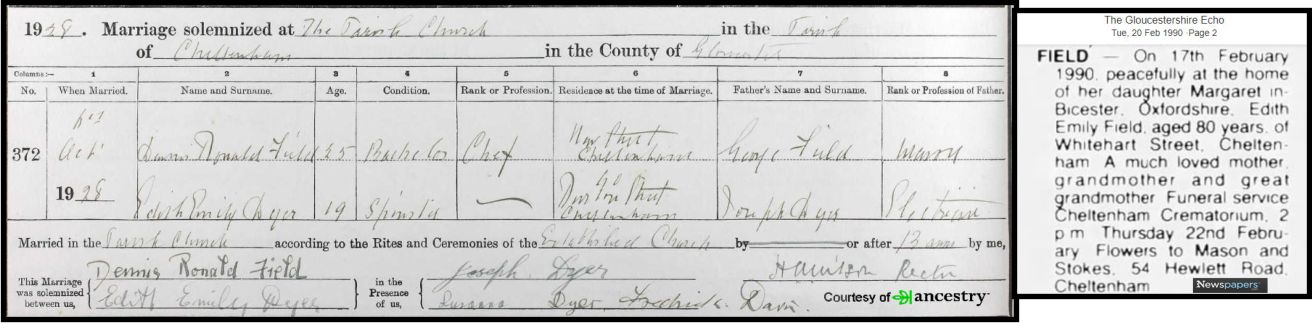 1928. Marriage solemnized at The Parish Church in the Parish
of Cheltenham in the County of Gloucester
Columns:— 1 2 3 4 5 6 7 8
No. When Married. Name and Surname. Age. Condition. Rank or Profession. Residence at the time of Marriage. Father's Name and Surname. Rank or Profession of Father.
372 Oct 1928
Dennis Ronald Field 25 Bachelor Chef New Street Cheltenham George Field Mason
Edith Emily Dyer 19 Spinster Street Cheltenham Joseph Dyer Electrician
Married in the Parish Church according to the Rites and Ceremonies of the Established Church by or after Banns by me,
This Marriage was solemnized between us,
Dennis Ronald Field
Edith Emily Dyer
in the Presence of us,
Joseph Dyer
Dyer Frederick Davis
Rector
Courtesy of ancestry
The Gloucestershire Echo
Tue, 20 Feb 1990 · Page 2
FIELD — On 17th February
1990, peacefully at the home
of her daughter Margaret in
Bicester, Oxfordshire, Edith
Emily Field, aged 80 years, of
Whitehart Street, Chelten-
ham A much loved mother,
grandmother and great
grandmother Funeral service
Cheltenham Crematorium, 2
p m Thursday 22nd Febru-
ary Flowers to Mason and
Stokes, 54 Hewlett Road,
Cheltenham
Newspapers